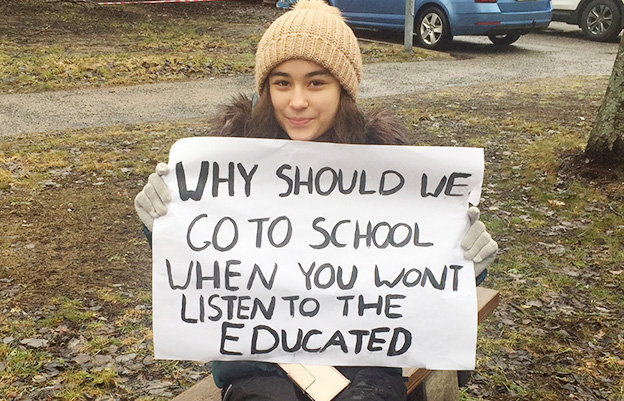 WHY SHOULD WE
GO TO SCHOOL
WHEN YOU WONT
LISTEN TO THE
EDUCATED